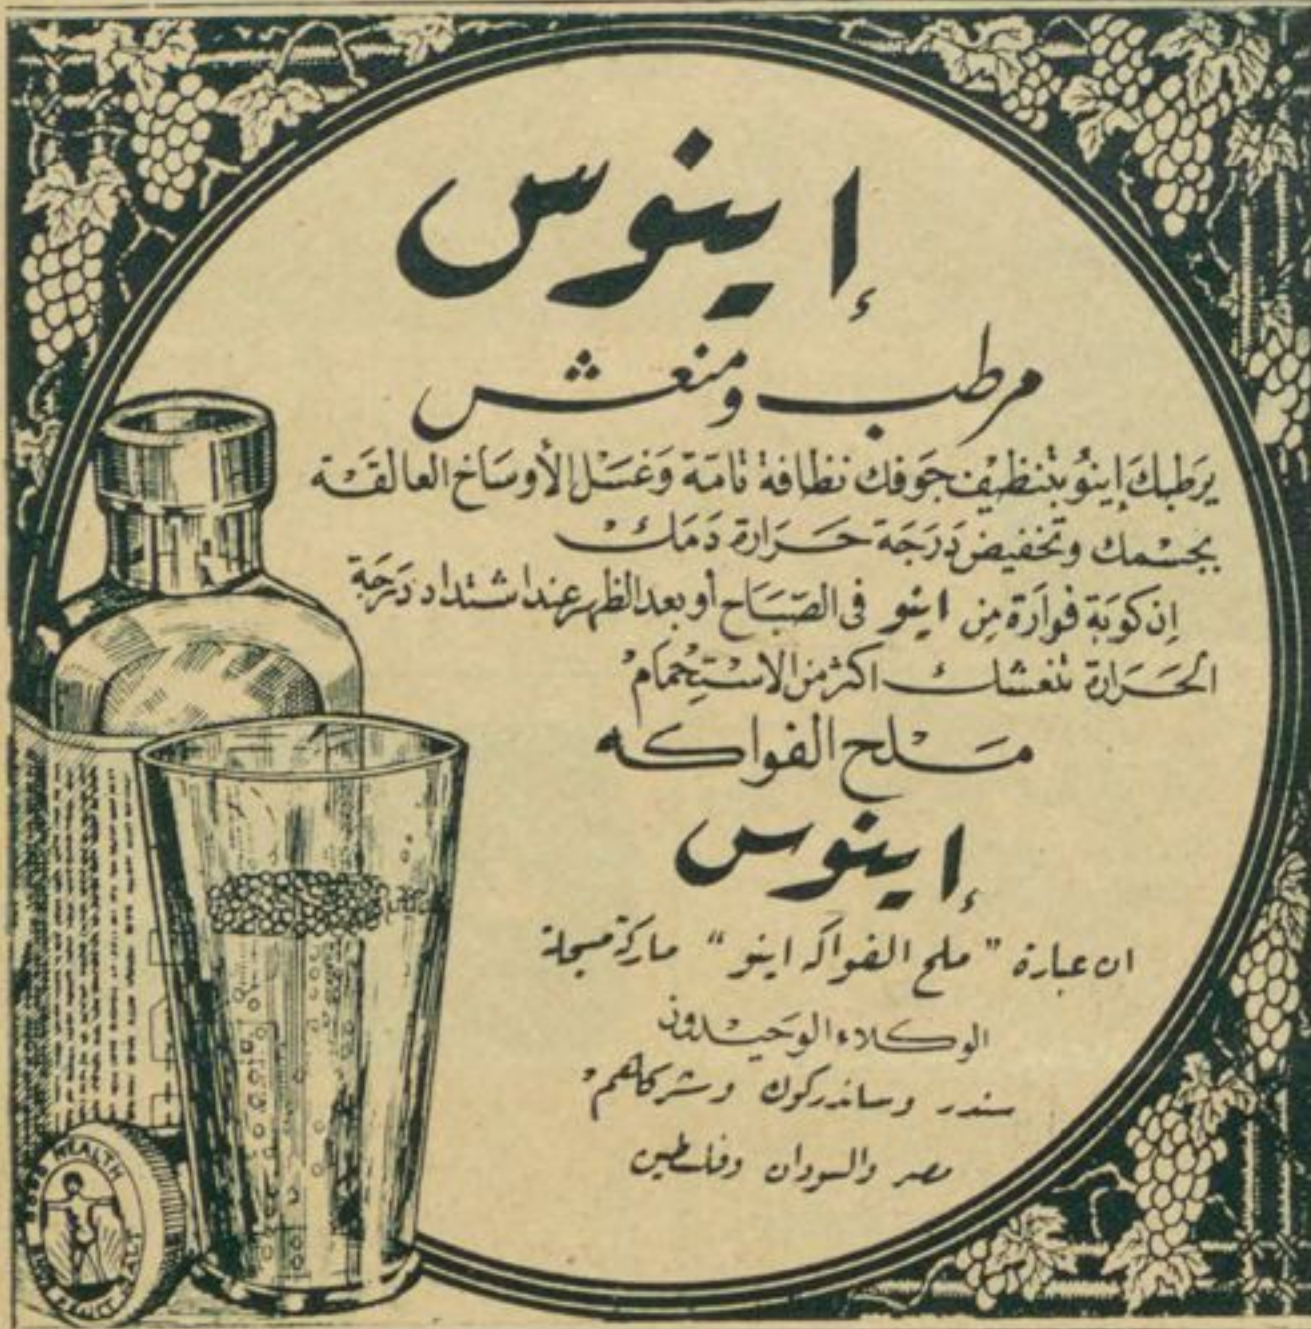 إينوس
مرطب ومنعش
يرطبك إينو بتنظيف جوفك نظافة تامة وغسل الأوساخ العالقة
بجسمك وتخفيض درجة حرارة دمك
إن كوبة فوارة من اينو فى الصباح أو بعد الظهر عند اشتداد درجة
الحرارة تنعشك اكثر من الاستحمام
ملح الفواكه
إينوس
ان عبارة "ملح الفواكه اينو" ماركة مسجلة
الوكلاء الوحيدون
سندر وساندركوك وشركاهم
مصر والسودان وفلسطين
HEALTH
FRUIT SALT